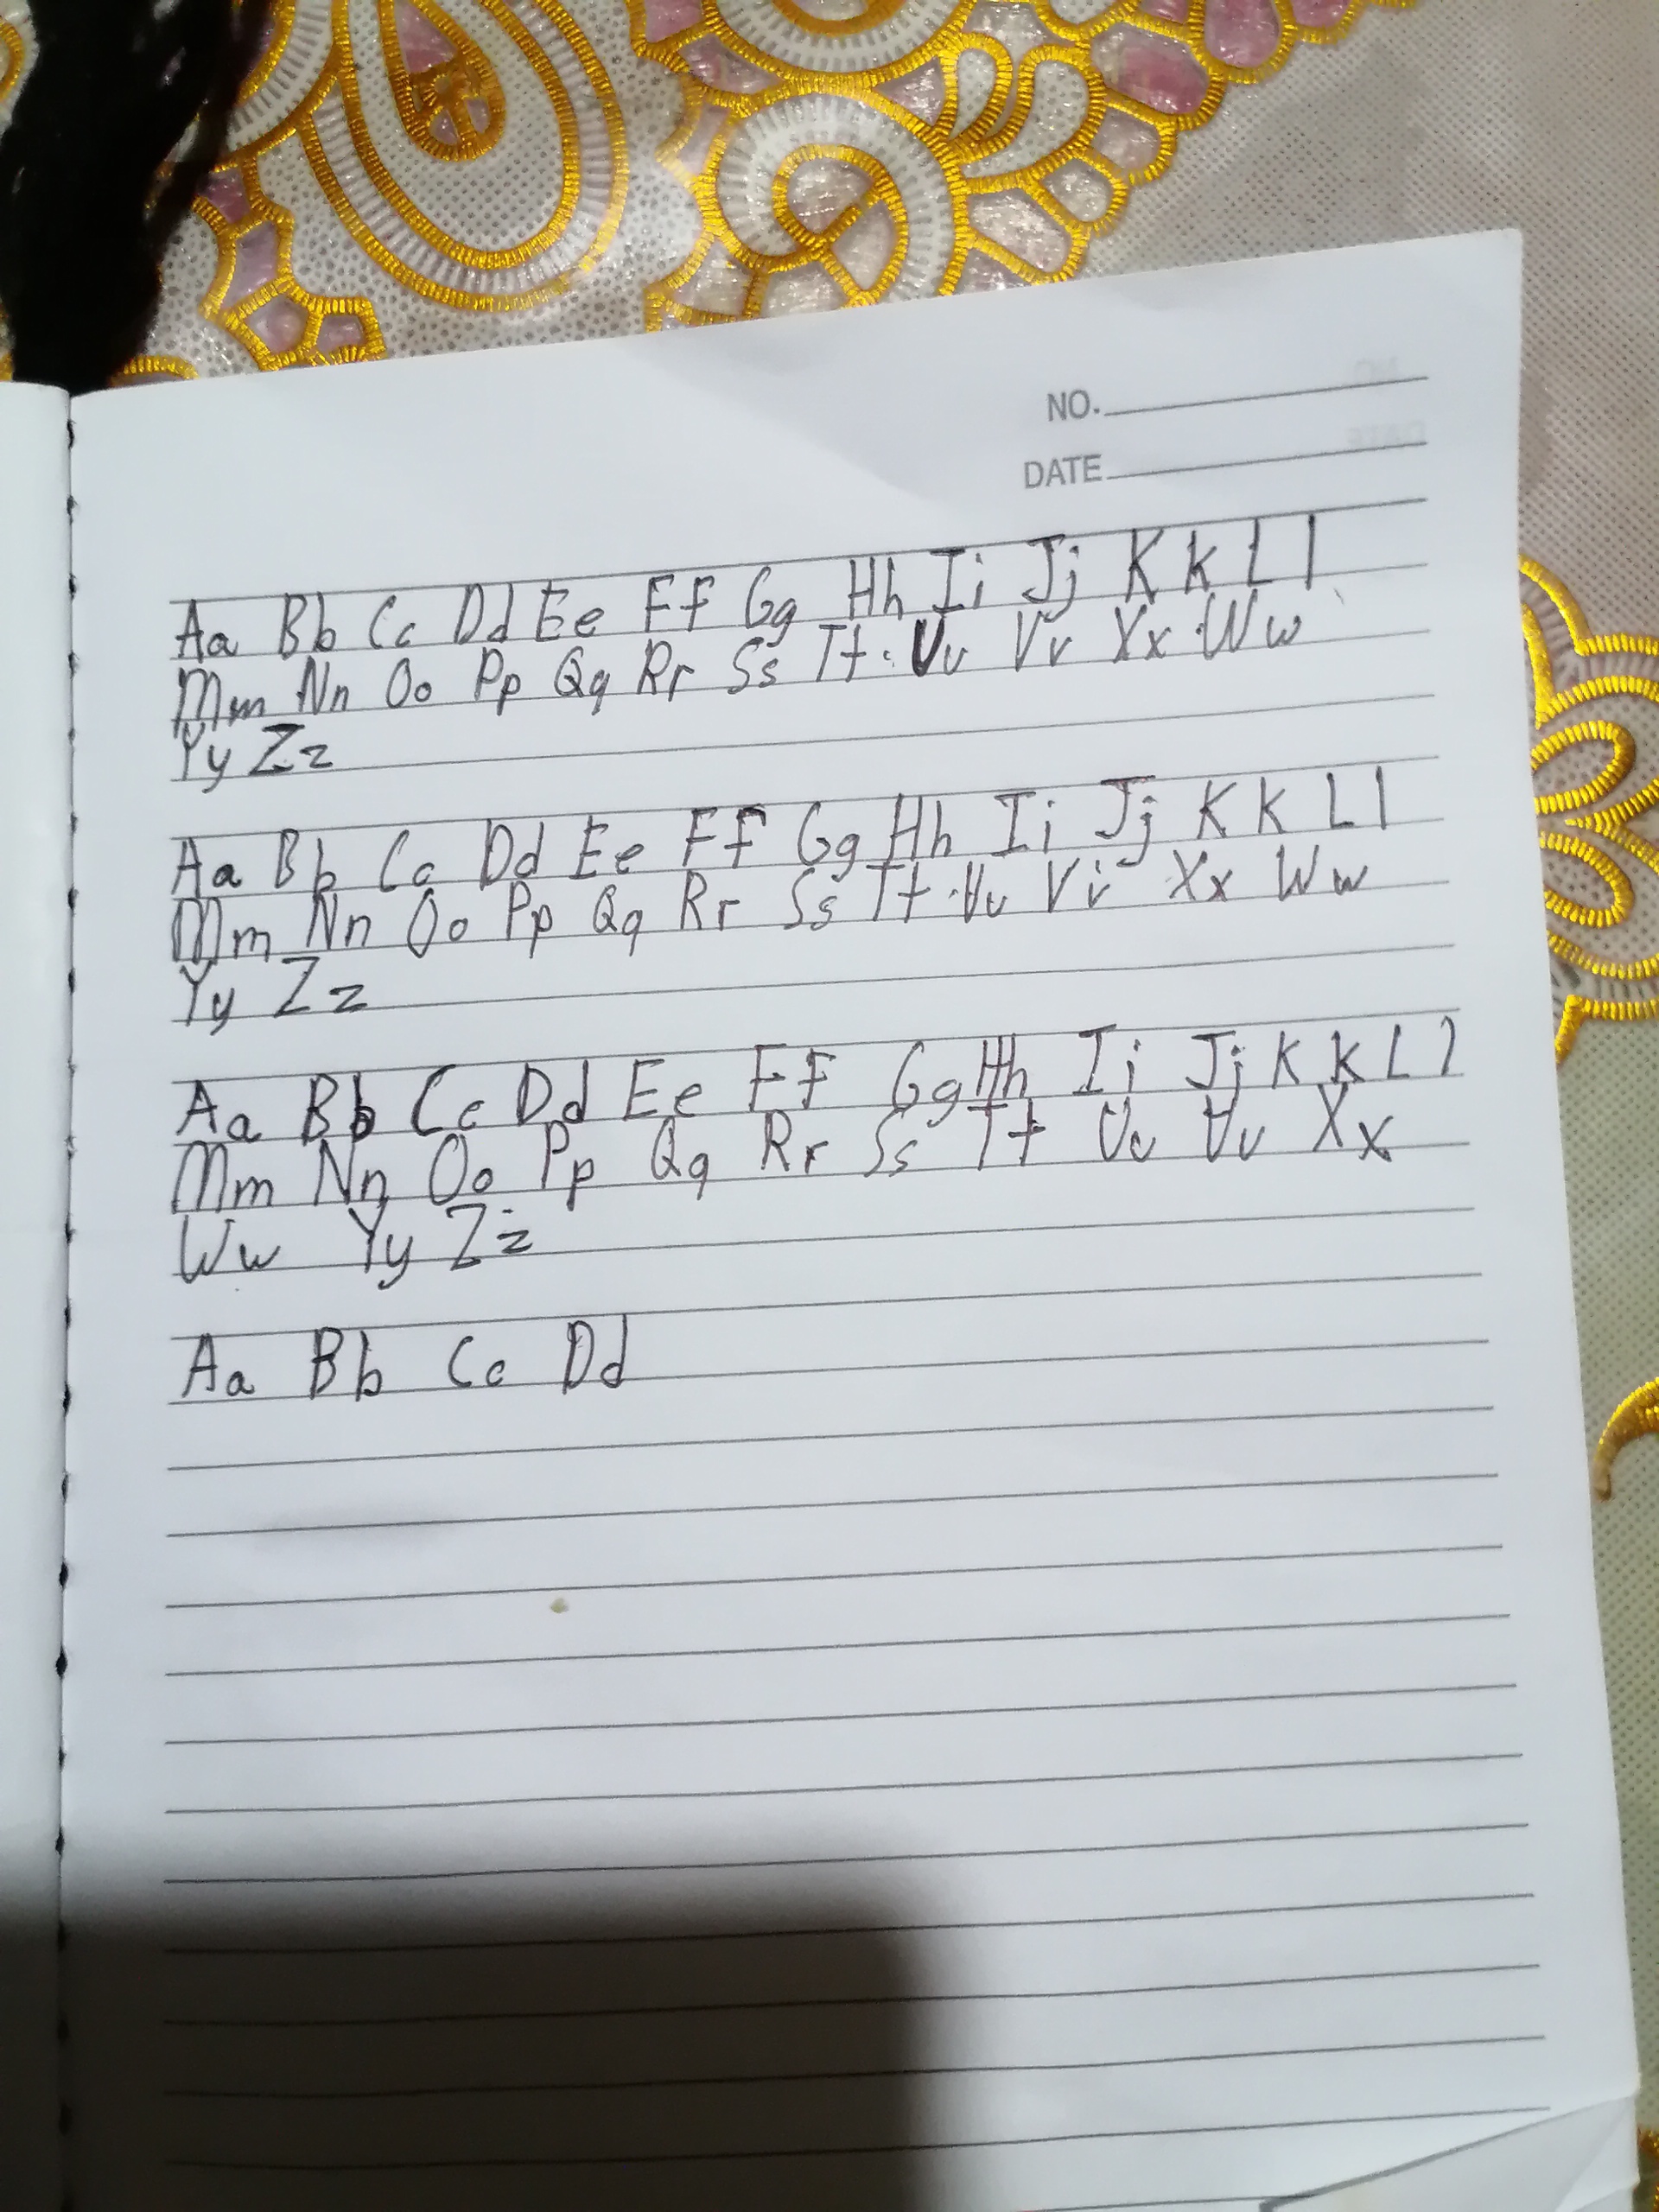 NO.
DATE
Aa Bb Cc Dd Ee Ff Gg Hh Ii Jj Kk Ll
Mm Nn Oo Pp Qq Rr Ss Tt Uu Vv Xx Ww
Yy Zz
Aa Bb Cc Dd Ee Ff Gg Hh Ii Jj Kk Ll
Mm Nn Oo Pp Qq Rr Ss Tt Uu Vv Xx Ww
Yy Zz
Aa Bb Cc Dd Ee Ff Gg Hh Ii Jj Kk Ll
Mm Nn Oo Pp Qq Rr Ss Tt Uu Vv Xx
Ww Yy Zz
Aa Bb Cc Dd